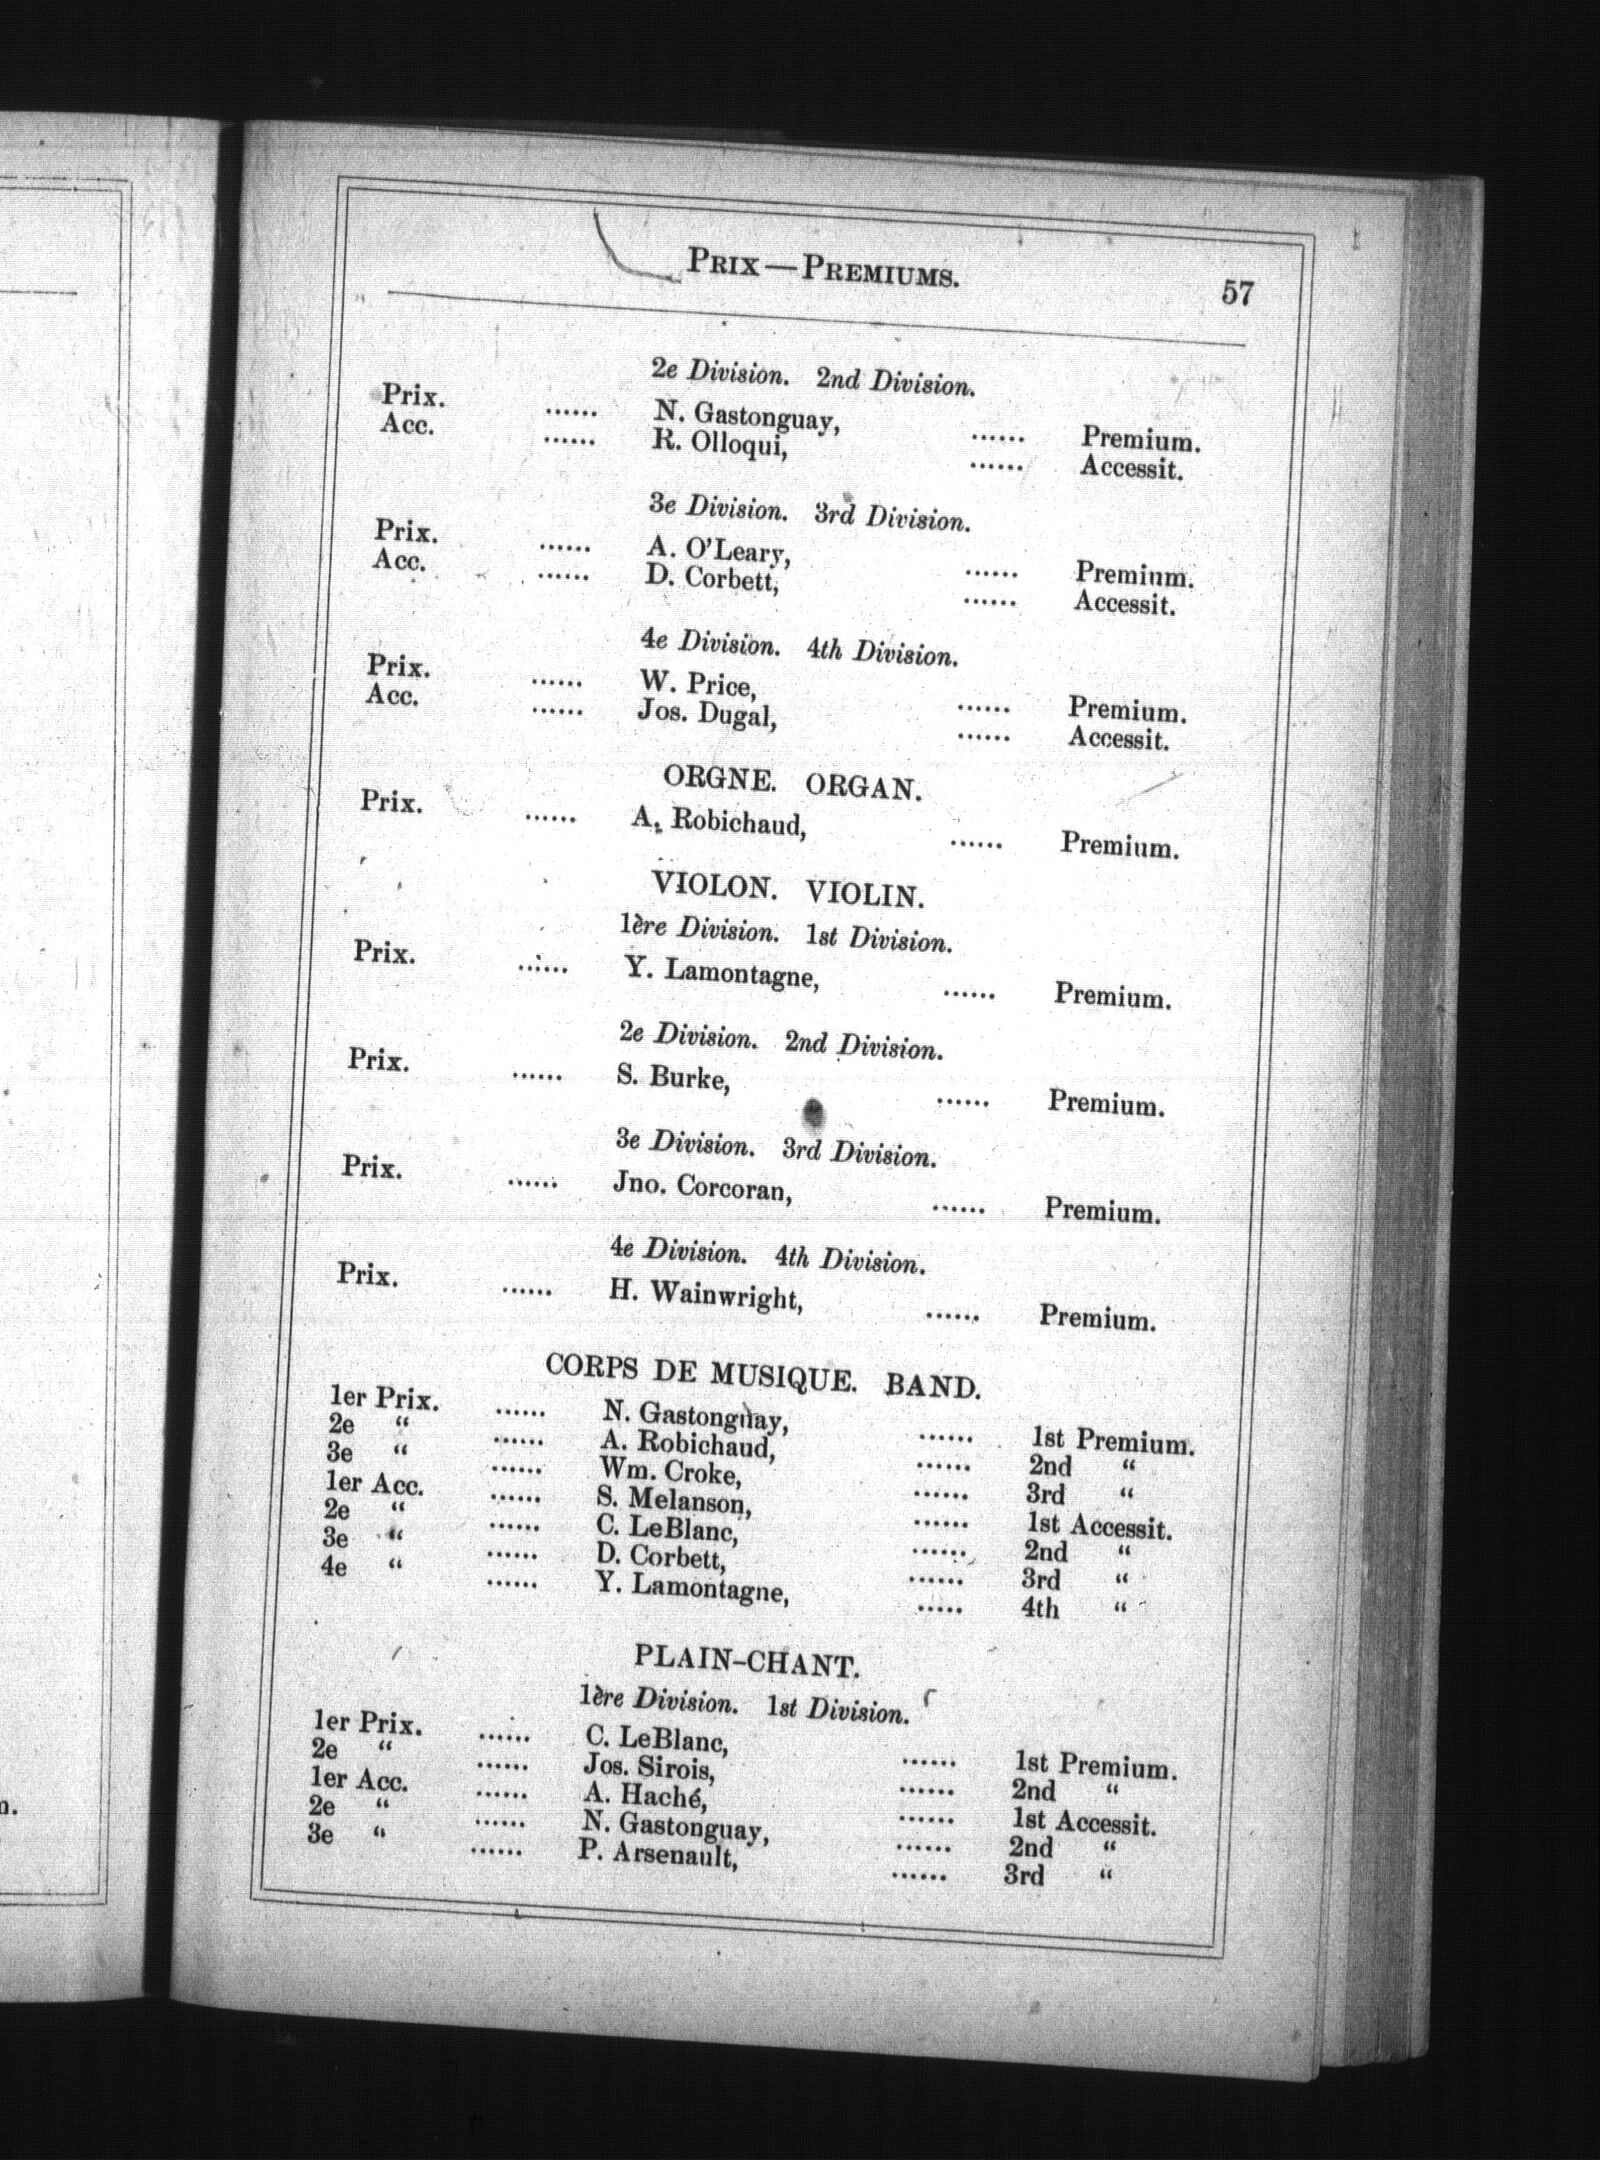 PRIX — PREMIUMS. 57
2e Division. 2nd Division.
Prix. ...... N. Gastonguay, ...... Premium.
Acc. ...... R. Olloqui, ...... Accessit.
3e Division. 3rd Division.
Prix. ...... A. O'Leary, ...... Premium.
Acc. ...... D. Corbett, ...... Accessit.
4e Division. 4th Division.
Prix. ...... W. Price, ...... Premium.
Acc. ...... Jos. Dugal, ...... Accessit.
ORGNE. ORGAN.
Prix. ...... A. Robichaud, ...... Premium.
VIOLON. VIOLIN.
1ère Division. 1st Division.
Prix. ...... Y. Lamontagne, ...... Premium.
2e Division. 2nd Division.
Prix. ...... S. Burke, ...... Premium.
3e Division. 3rd Division.
Prix. ...... Jno. Corcoran, ...... Premium.
4e Division. 4th Division.
Prix. ...... H. Wainwright, ...... Premium.
CORPS DE MUSIQUE. BAND.
1er Prix. ...... N. Gastonguay, ...... 1st Premium.
2e “ ...... A. Robichaud, ...... 2nd “
3e “ ...... Wm. Croke, ...... 3rd “
1er Acc. ...... S. Melanson, ...... 1st Accessit.
2e “ ...... C. LeBlanc, ...... 2nd “
3e “ ...... D. Corbett, ...... 3rd “
4e “ ...... Y. Lamontagne, ..... 4th “
PLAIN-CHANT.
1ère Division. 1st Division.
1er Prix. ...... C. LeBlanc, ...... 1st Premium.
2e “ ...... Jos. Sirois, ...... 2nd “
1er Acc. ...... A. Haché, ...... 1st Accessit.
2e “ ...... N. Gastonguay, ...... 2nd “
3e “ ...... P. Arsenault, ...... 3rd “